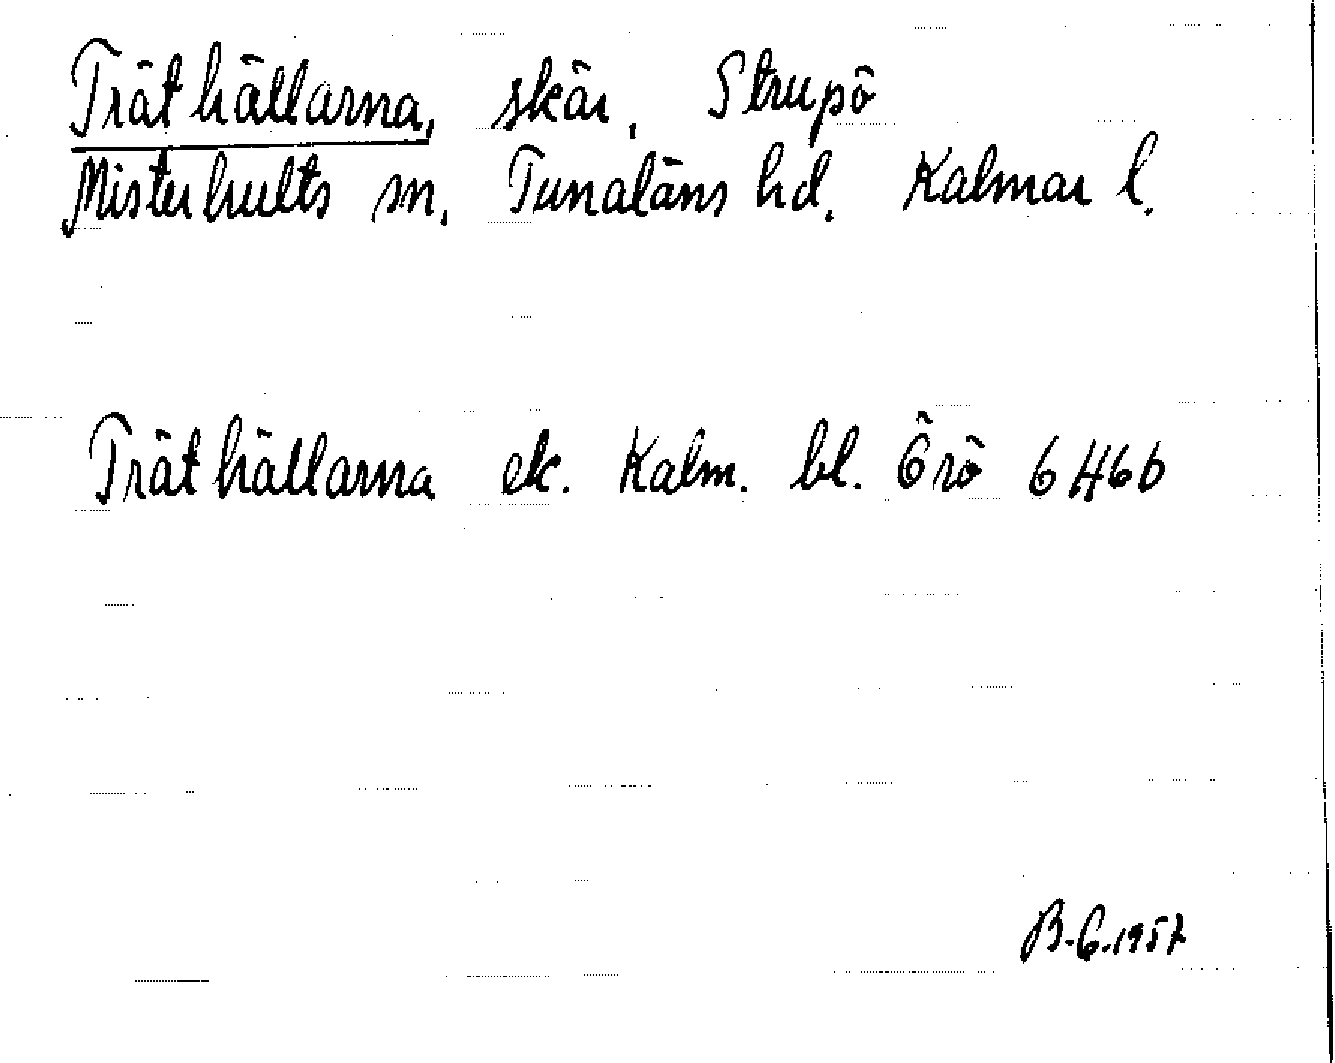 Träthällarna, skär, Strupö
Misterhults sn. Tunaläns hd. Kalmar l.
Träthällarna ek. Kalm. bl. Örö 6H6b
B.G.1957